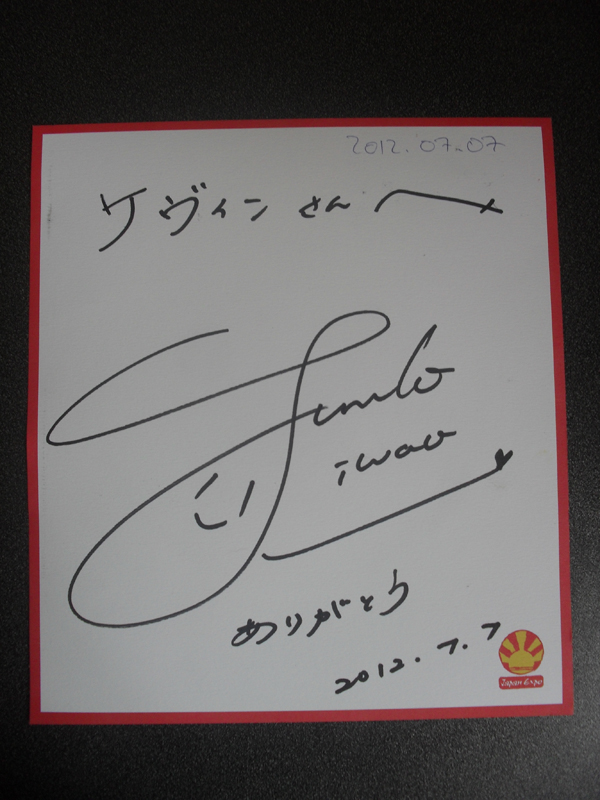 2012.07.07
ケヴィンさんへ
Junko
iwao
ありがとう
2012.7.7
Japan Expo